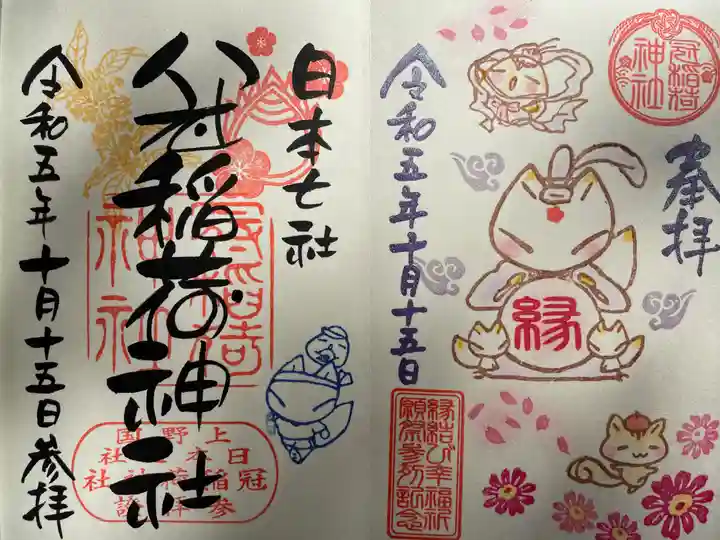 奉拝
冠稲荷
神社
縁
令和五年十月十五日
縁結び幸福祈
願祭参所記念
日本七社
冠稲荷神社
令和五年十月十五日参拝
上野国
日本七社
冠稲荷神社
参拝證